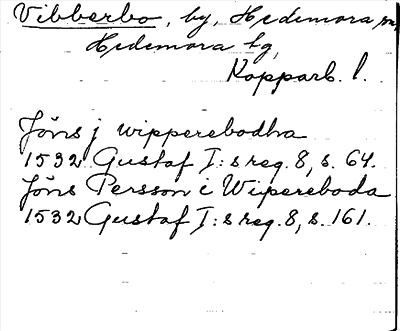 Vibberbo, by, Hedemora sn,
Hedemora tg,
Kopparb. l.
Jöns j wipperebodha
1532 Gustaf I:s reg. 8, s. 64.
Jöns Persson i Wiipereboda
1532 Gustaf I:s reg. 8, s. 161.